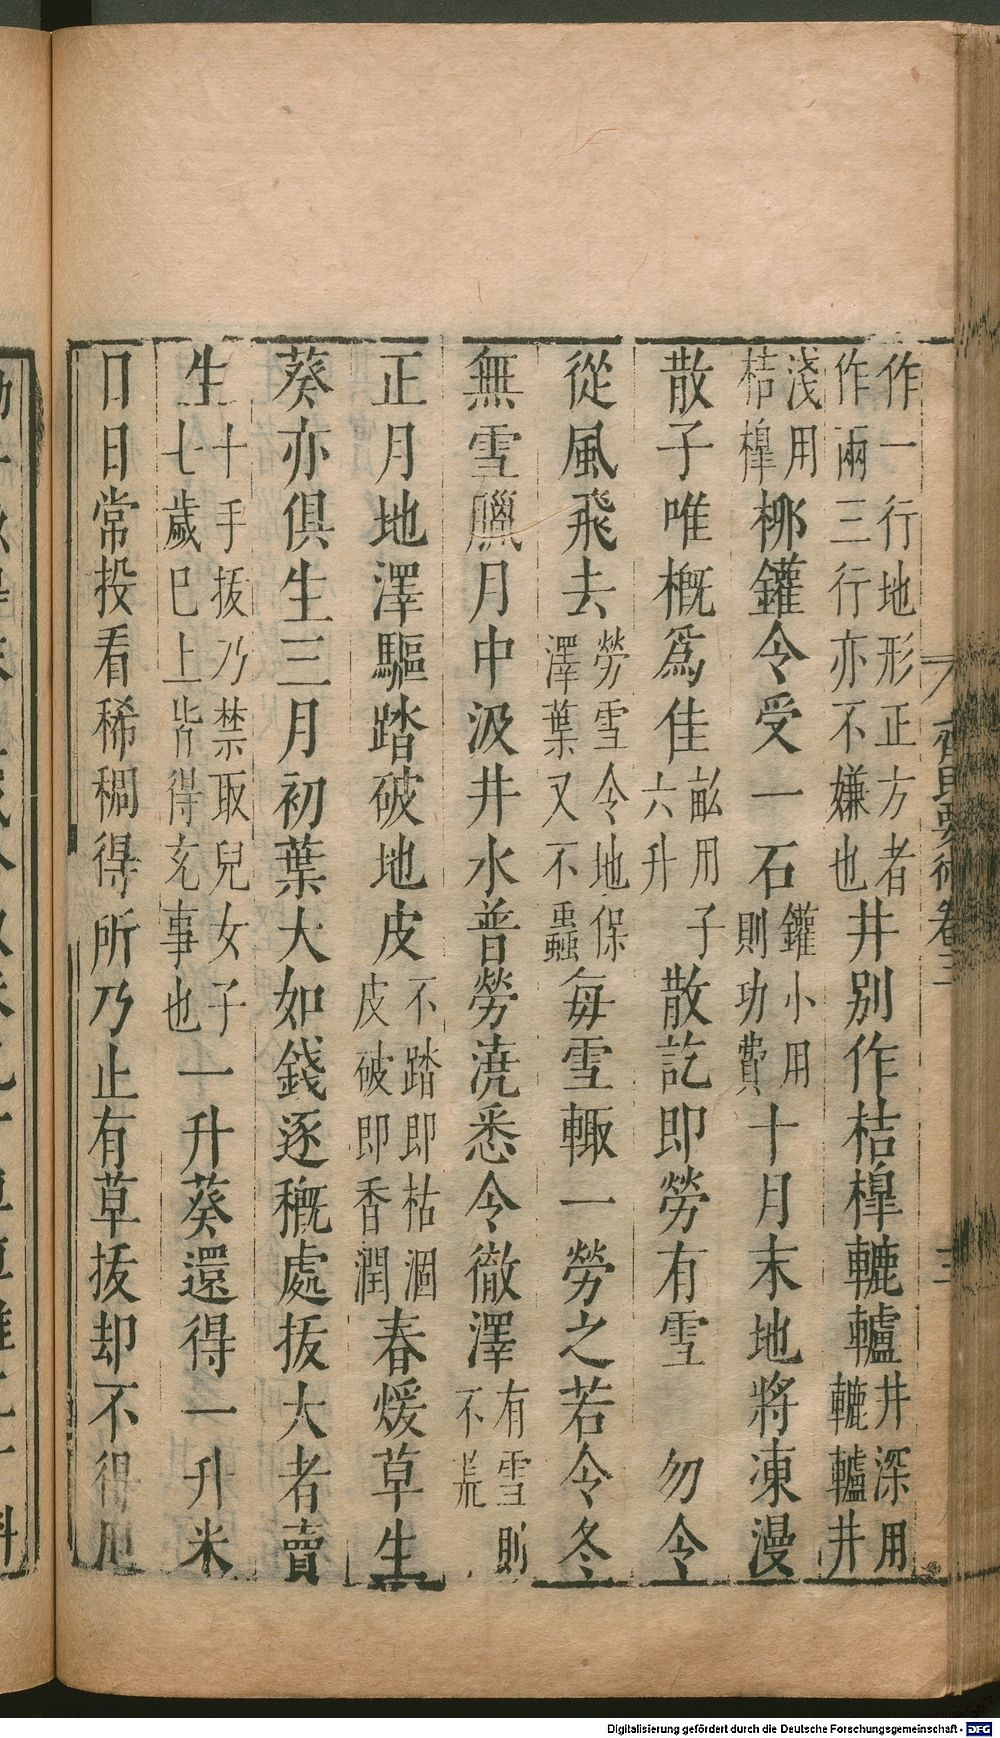 齊民要術卷三 三
作一行地形正方者作兩三行亦不嫌也井別作桔橰轆轤井深用轆轤井
淺用桔橰桞鑵令受一石鑵小用則功費十月末地將凍漫
散子唯槪爲佳畝用子六升散訖即勞有雪勿令
從風飛去勞雪令地保澤葉又不蟲每雪輙一勞之若令冬
無雪臘月中汲井水普勞澆悉令徹澤有雪則不荒
正月地澤驅踏破地皮不踏即枯涸皮破即香潤春煖草生
葵亦俱生三月初葉大如錢逐穊處拔大者賣
生十手拔乃禁取兒女子七歲巳上皆得充事也一升葵還得一升米
日日常投看稀稠得所乃止有草拔却不得用
Digitalisierung gefördert durch die Deutsche Forschungsgemeinschaft - DFG